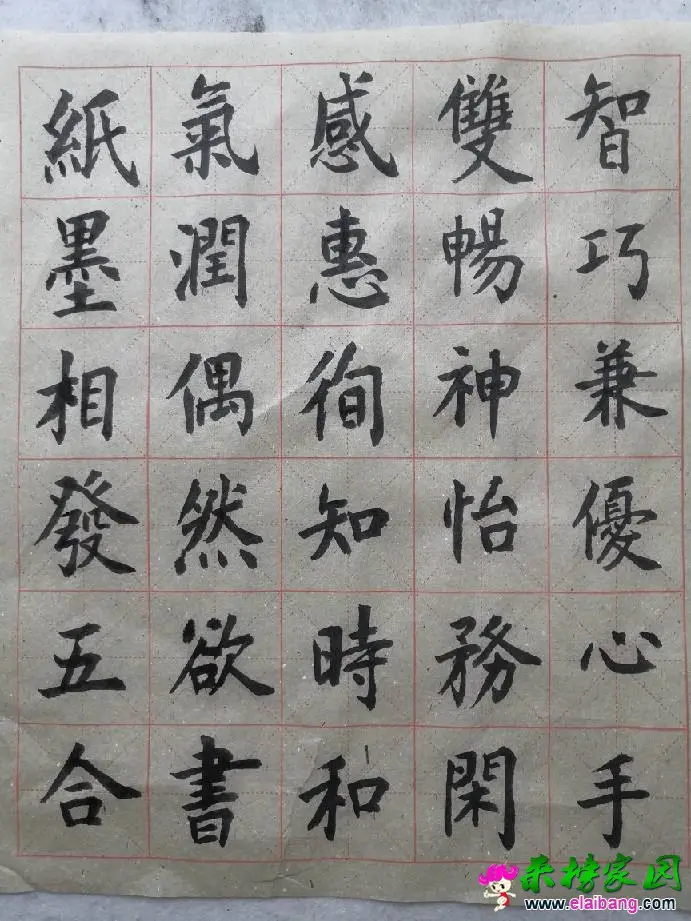 智巧兼優心手
雙暢神怡務閑
感惠徇知時和
氣潤偶然欲書
紙墨相發五合
乐榜家园
www.elaibang.com